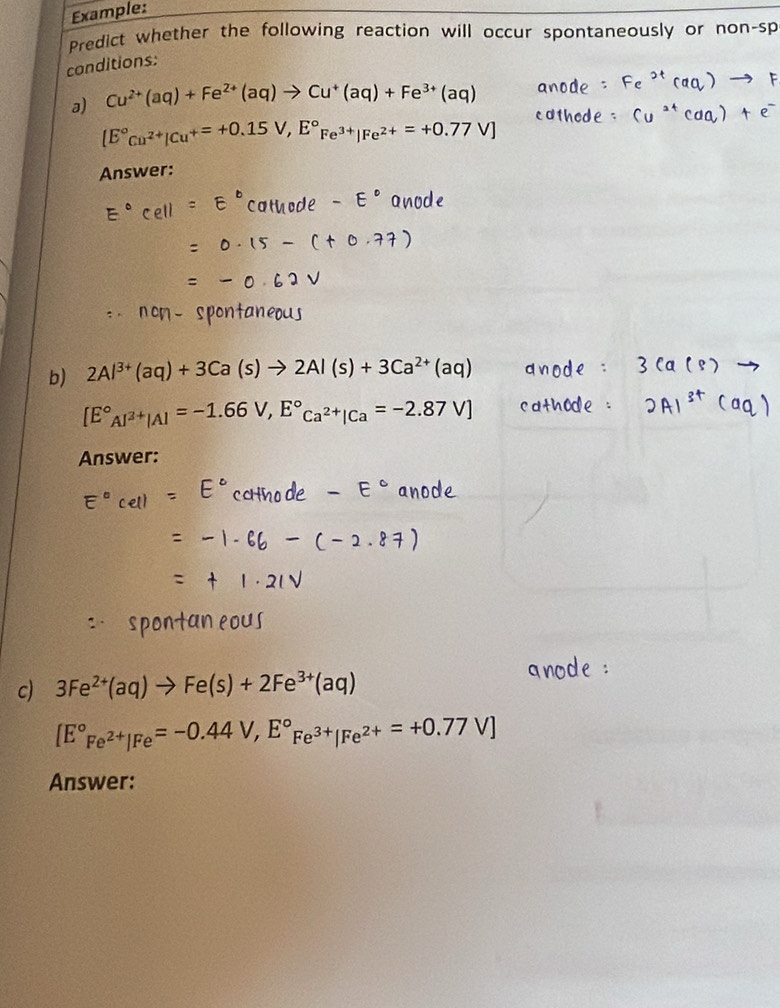 Example:
Predict whether the following reaction will occur spontaneously or non-sp
conditions:
a) Cu²⁺(aq) + Fe²⁺(aq) → Cu⁺(aq) + Fe³⁺(aq)
anode : Fe²⁺(aq) → F
[E°Cu²⁺|Cu⁺ = +0.15 V, E°Fe³⁺|Fe²⁺ = +0.77 V]
cathode : Cu²⁺(aq) + e⁻
Answer:
E°cell = E°cathode - E°anode
= 0.15 - (+0.77)
= -0.62 V
∴ non-spontaneous
b) 2Al³⁺(aq) + 3Ca (s) → 2Al (s) + 3Ca²⁺(aq)
anode : 3Ca(s) →
[E°Al³⁺|Al = −1.66 V, E°Ca²⁺|Ca = −2.87 V]
cathode : 2Al³⁺(aq)
Answer:
E°cell = E°cathode - E°anode
= -1.66 - (-2.87)
= +1.21V
∴ spontaneous
c) 3Fe²⁺(aq) → Fe(s) + 2Fe³⁺(aq)
anode :
[E°Fe²⁺|Fe = −0.44 V, E°Fe³⁺|Fe²⁺ = +0.77 V]
Answer: